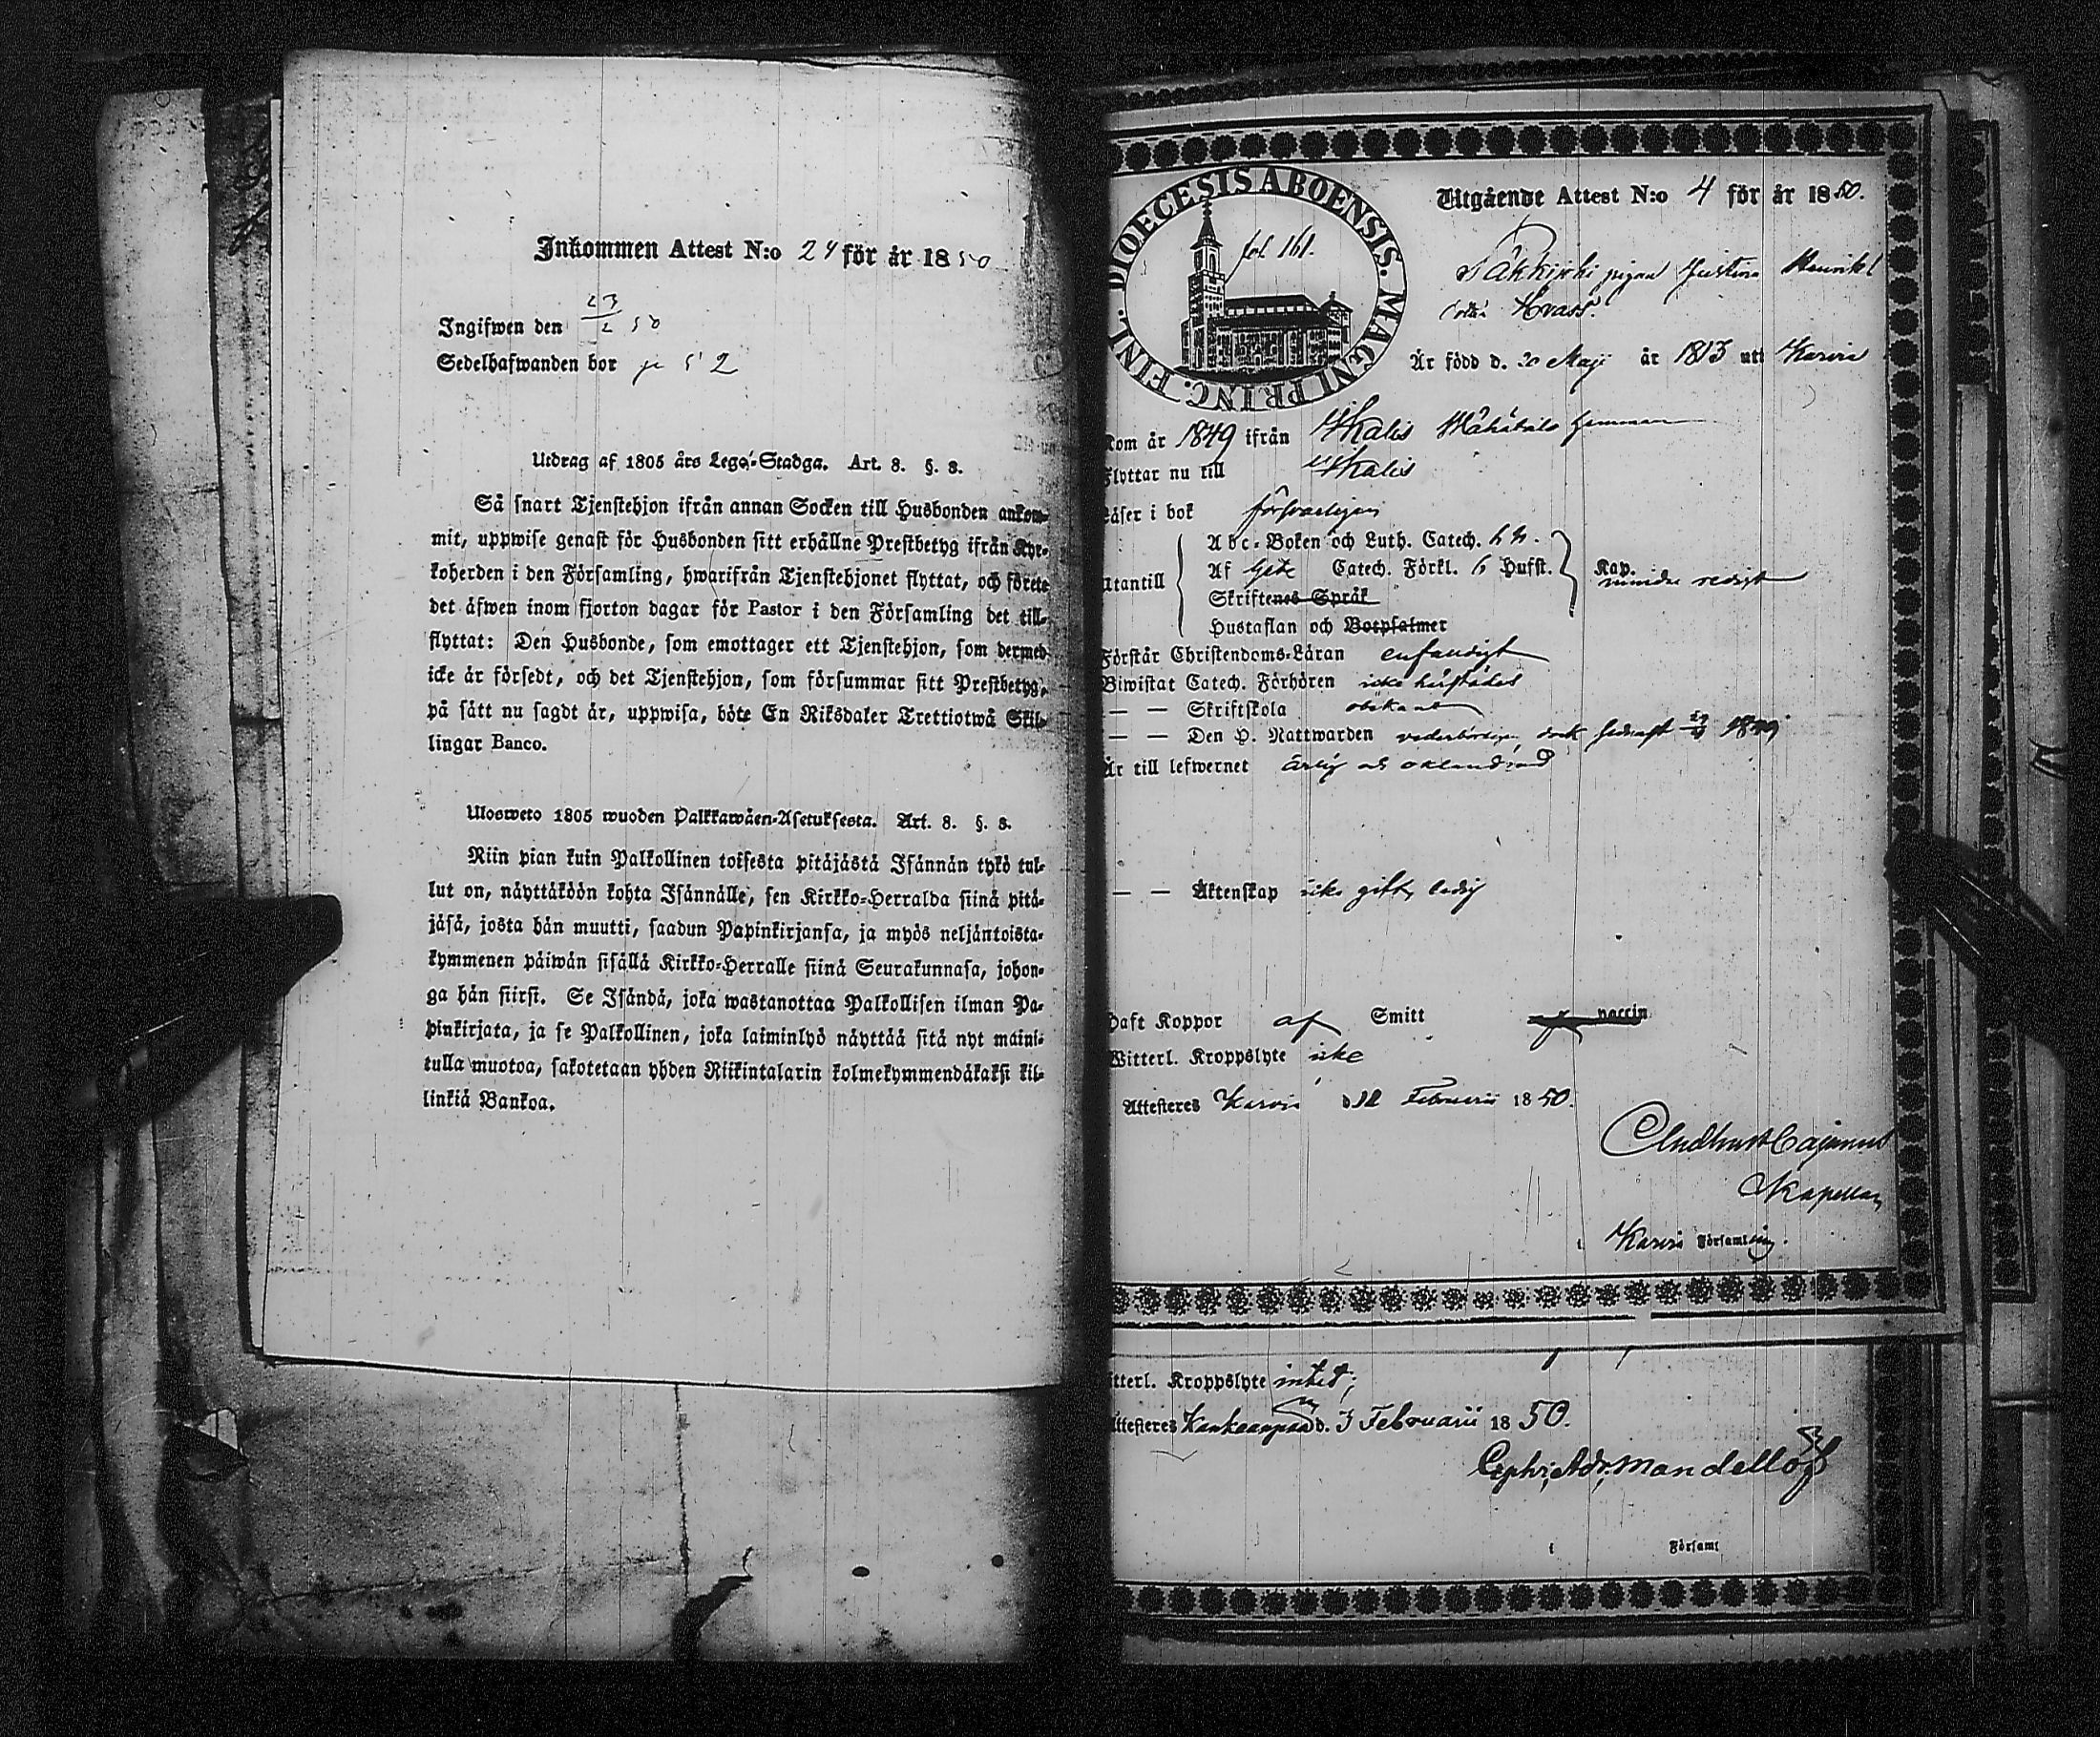 Inkommen Attest N:o 24 för år 1850
Ingifwen den 23/2 50
Sedelhafwanden bor
Utdrag af 1805 års Lego-Stadga. Art. 8. §. 8.
Så snart Tjenstehjon ifrån annan Socken till Husbonden ankom-
mit, uppwise genast för Husbonden sitt erhållne Prestbetyg ifrån Kyr-
koherden i den Församling, hwarifrån Tjenstehjonet flyttat, och förete
det äfwen inom fjorton dagar för Pastor i den Församling det till-
flyttat: Den Husbonde, som emottager ett Tjenstehjon, som dermed
icke är försedt, och det Tjenstehjon, som försummar sitt Prestbetyg,
på sätt nu sagdt är, uppwisa, böte En Riksdaler Trettiotwå Skil-
lingar Banco.
Ulosweto 1805 wuoden Palkkawäen-Asetuksesta. Art. 8. §. 8.
Niin pian kuin Palkollinen toisesta pitäjästä Isännän tykö tul-
lut on, näyttäköön kohta Isännälle, sen Kirkko-Herralda siinä pitä-
jäsä, josta hän muutti, saadun Papinkirjansa, ja myös neljäntoista-
kymmenen päiwän sisällä Kirkko-Herralle siinä Seurakunnasa, johon-
ga hän siirsi. Se Isändä, joka wastanottaa Palkollisen ilman Pa-
pinkirjata, ja se Palkollinen, joka laiminlyö näyttää sitä nyt maini-
tulla muotoa, sakotetaan yhden Riikintalarin kolmekymmendäkaksi kil-
linkiä Bankoa.
DIOECESIS ABOENSIS. MAGNI PRINC. FINL.
fol 161.
Utgående Attest N:o 4 för år 1850.
pigan Justina Henriks
dotter
Är född d. 20 Maji år 1813 uti Karvia
kom år 1849 ifrån Ikalis hemman
flyttar nu till Ikalis
läser i bok försvarligen
utantill
Abc-Boken och Luth. Catech.
Af Catech. Förkl. Hust. Kap.
mindre redigt
Skriftenes Språk
Hustaflan och Botpsalmer
Förstår Christendoms-Läran enfaldigt
Biwistat Catech. Förhören icke härstädes
— — Skriftskola obekant
— — Den H. Nattwarden wederbörligen, dock sednast 1849
Är till lefwernet ärlig och oklandrad
— — Äktenskap icke gift, ledig
Haft Koppor af Smitt vaccin
Witterl. Kroppslyte icke
Attesteres Karvia d. 12 Februarii 1850.
Cajanus
Kapellan
i Karvia Församling.
itterl. Kroppslyte intet;
Attesteres Kankaanpää d. 3 Februarii 1850.
Mandellöf
i Församl